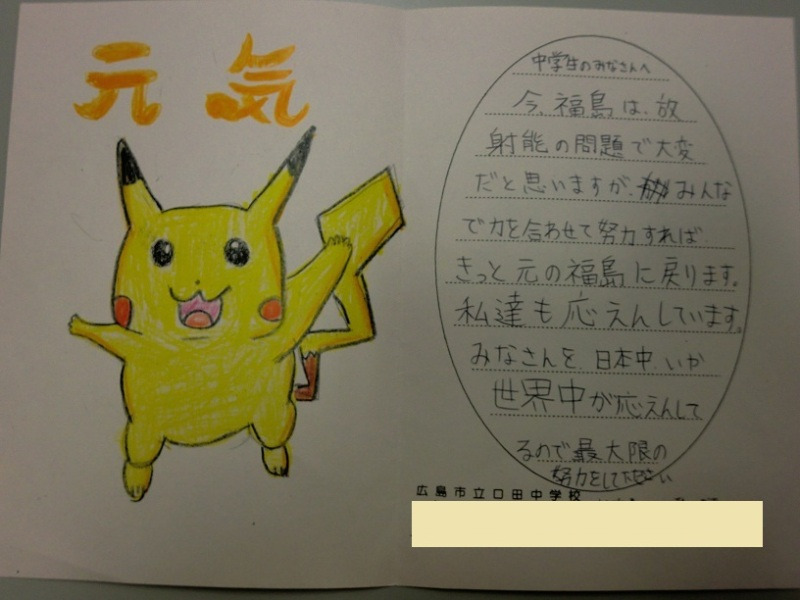 元気
中学生のみなさんへ
今、福島は、放
射能の問題で大変
だと思いますが、みんな
で力を合わせて努力すれば
きっと元の福島に戻ります。
私達も応えんしています。
みなさんを、日本中、いや
世界中が応えんして
るので最大限の
努力をしてください
広島市立口田中学校